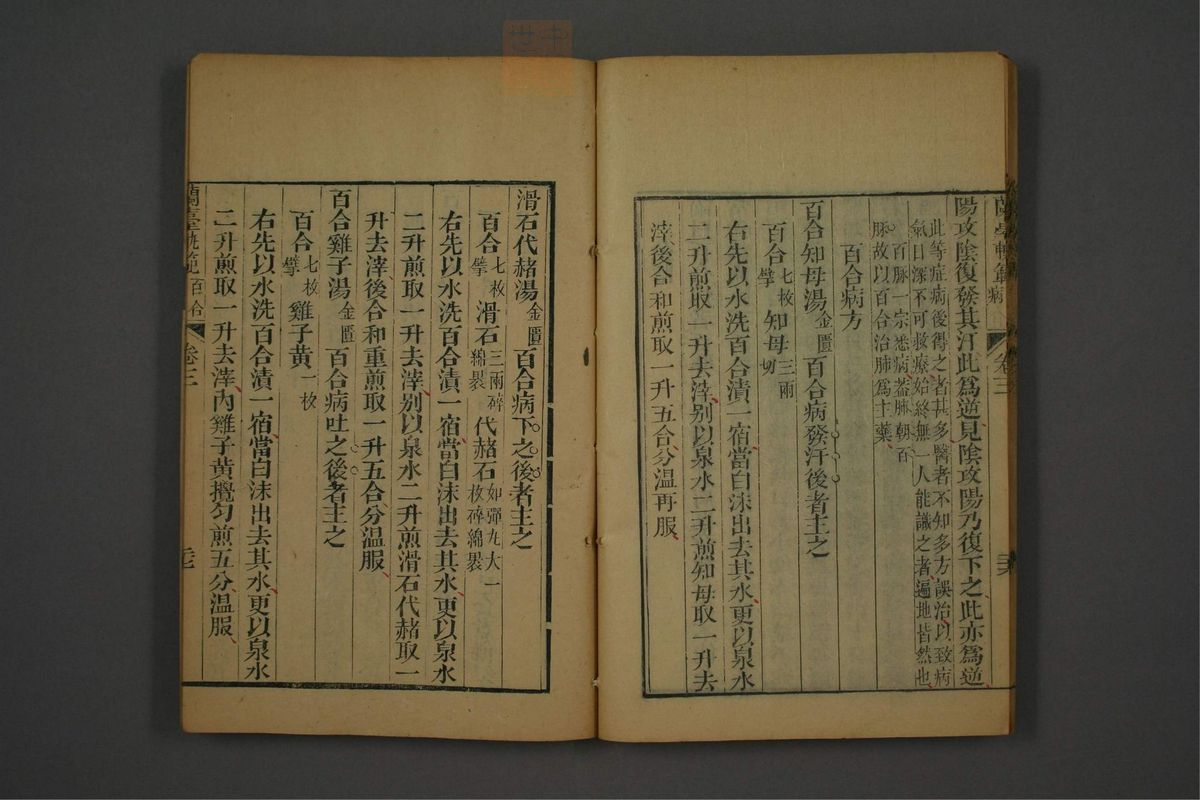 陽攻陰復發其汗此爲逆見陰攻陽乃復下之此亦爲逆
此等症病後得之者甚多醫者不知多方誤治以致病
氣日深不可救療始終無一人能識之者遍地皆然也
百脉一宗悉病葢肺朝百
脉故以百合治肺爲主藥
百合病方
百合知母湯金匱 百合病發汗後者主之
百合七枚擘 知母三兩切
右先以水洗百合漬一宿當白沫出去其水更以泉水
二升煎取一升去滓別以泉水二升煎知母取一升去
滓後合和煎取一升五合分温再服
卷三
滑石代赭湯金匱 百合病下之後者主之
百合七枚擘 滑石三兩碎綿裹 代赭石如彈丸大一枚碎綿裹
右先以水洗百合漬一宿當白沫出去其水更以泉水
二升煎取一升去滓別以泉水二升煎滑石代赭取一
升去滓後合和重煎取一升五合分温服
百合雞子湯金匱 百合病吐之後者主之
百合七枚擘 雞子黄一枚
右先以水洗百合漬一宿當白沫出去其水更以泉水
二升煎取一升去滓內雞子黄攪勻煎五分温服
蘭臺軌範 百合 卷三